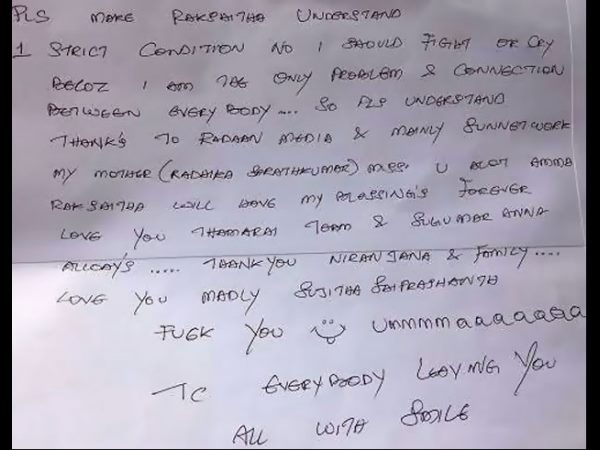 PLS MAKE RAKSAITHA UNDERSTAND
1 STRICT CONDITION NO 1 SHOULD FIGHT OR CRY
BECOZ I AM THE ONLY PROBLEM & CONNECTION
BETWEEN EVERYBODY.... SO PLS UNDERSTAND
THANK'S TO RADAAN MEDIA & MAINLY SUNNETWORK
MY MOTHER (RADHIKA SARATHKUMAR) MISS U ALOT AMMA
RAKSAITHA WILL HAVE MY BLESSING'S FOREVER
LOVE YOU THAMARAI TEAM & SUGUMAR ANNA
ALLWAY'S ..... THANK YOU NIRANJANA & FAMILY.....
LOVE YOU MADLY SUJITHA SAIPRASHANTH
FUCK YOU Ummmmaaaaaaa
TC EVERYBODY LEAVING YOU
ALL WITH SMILE